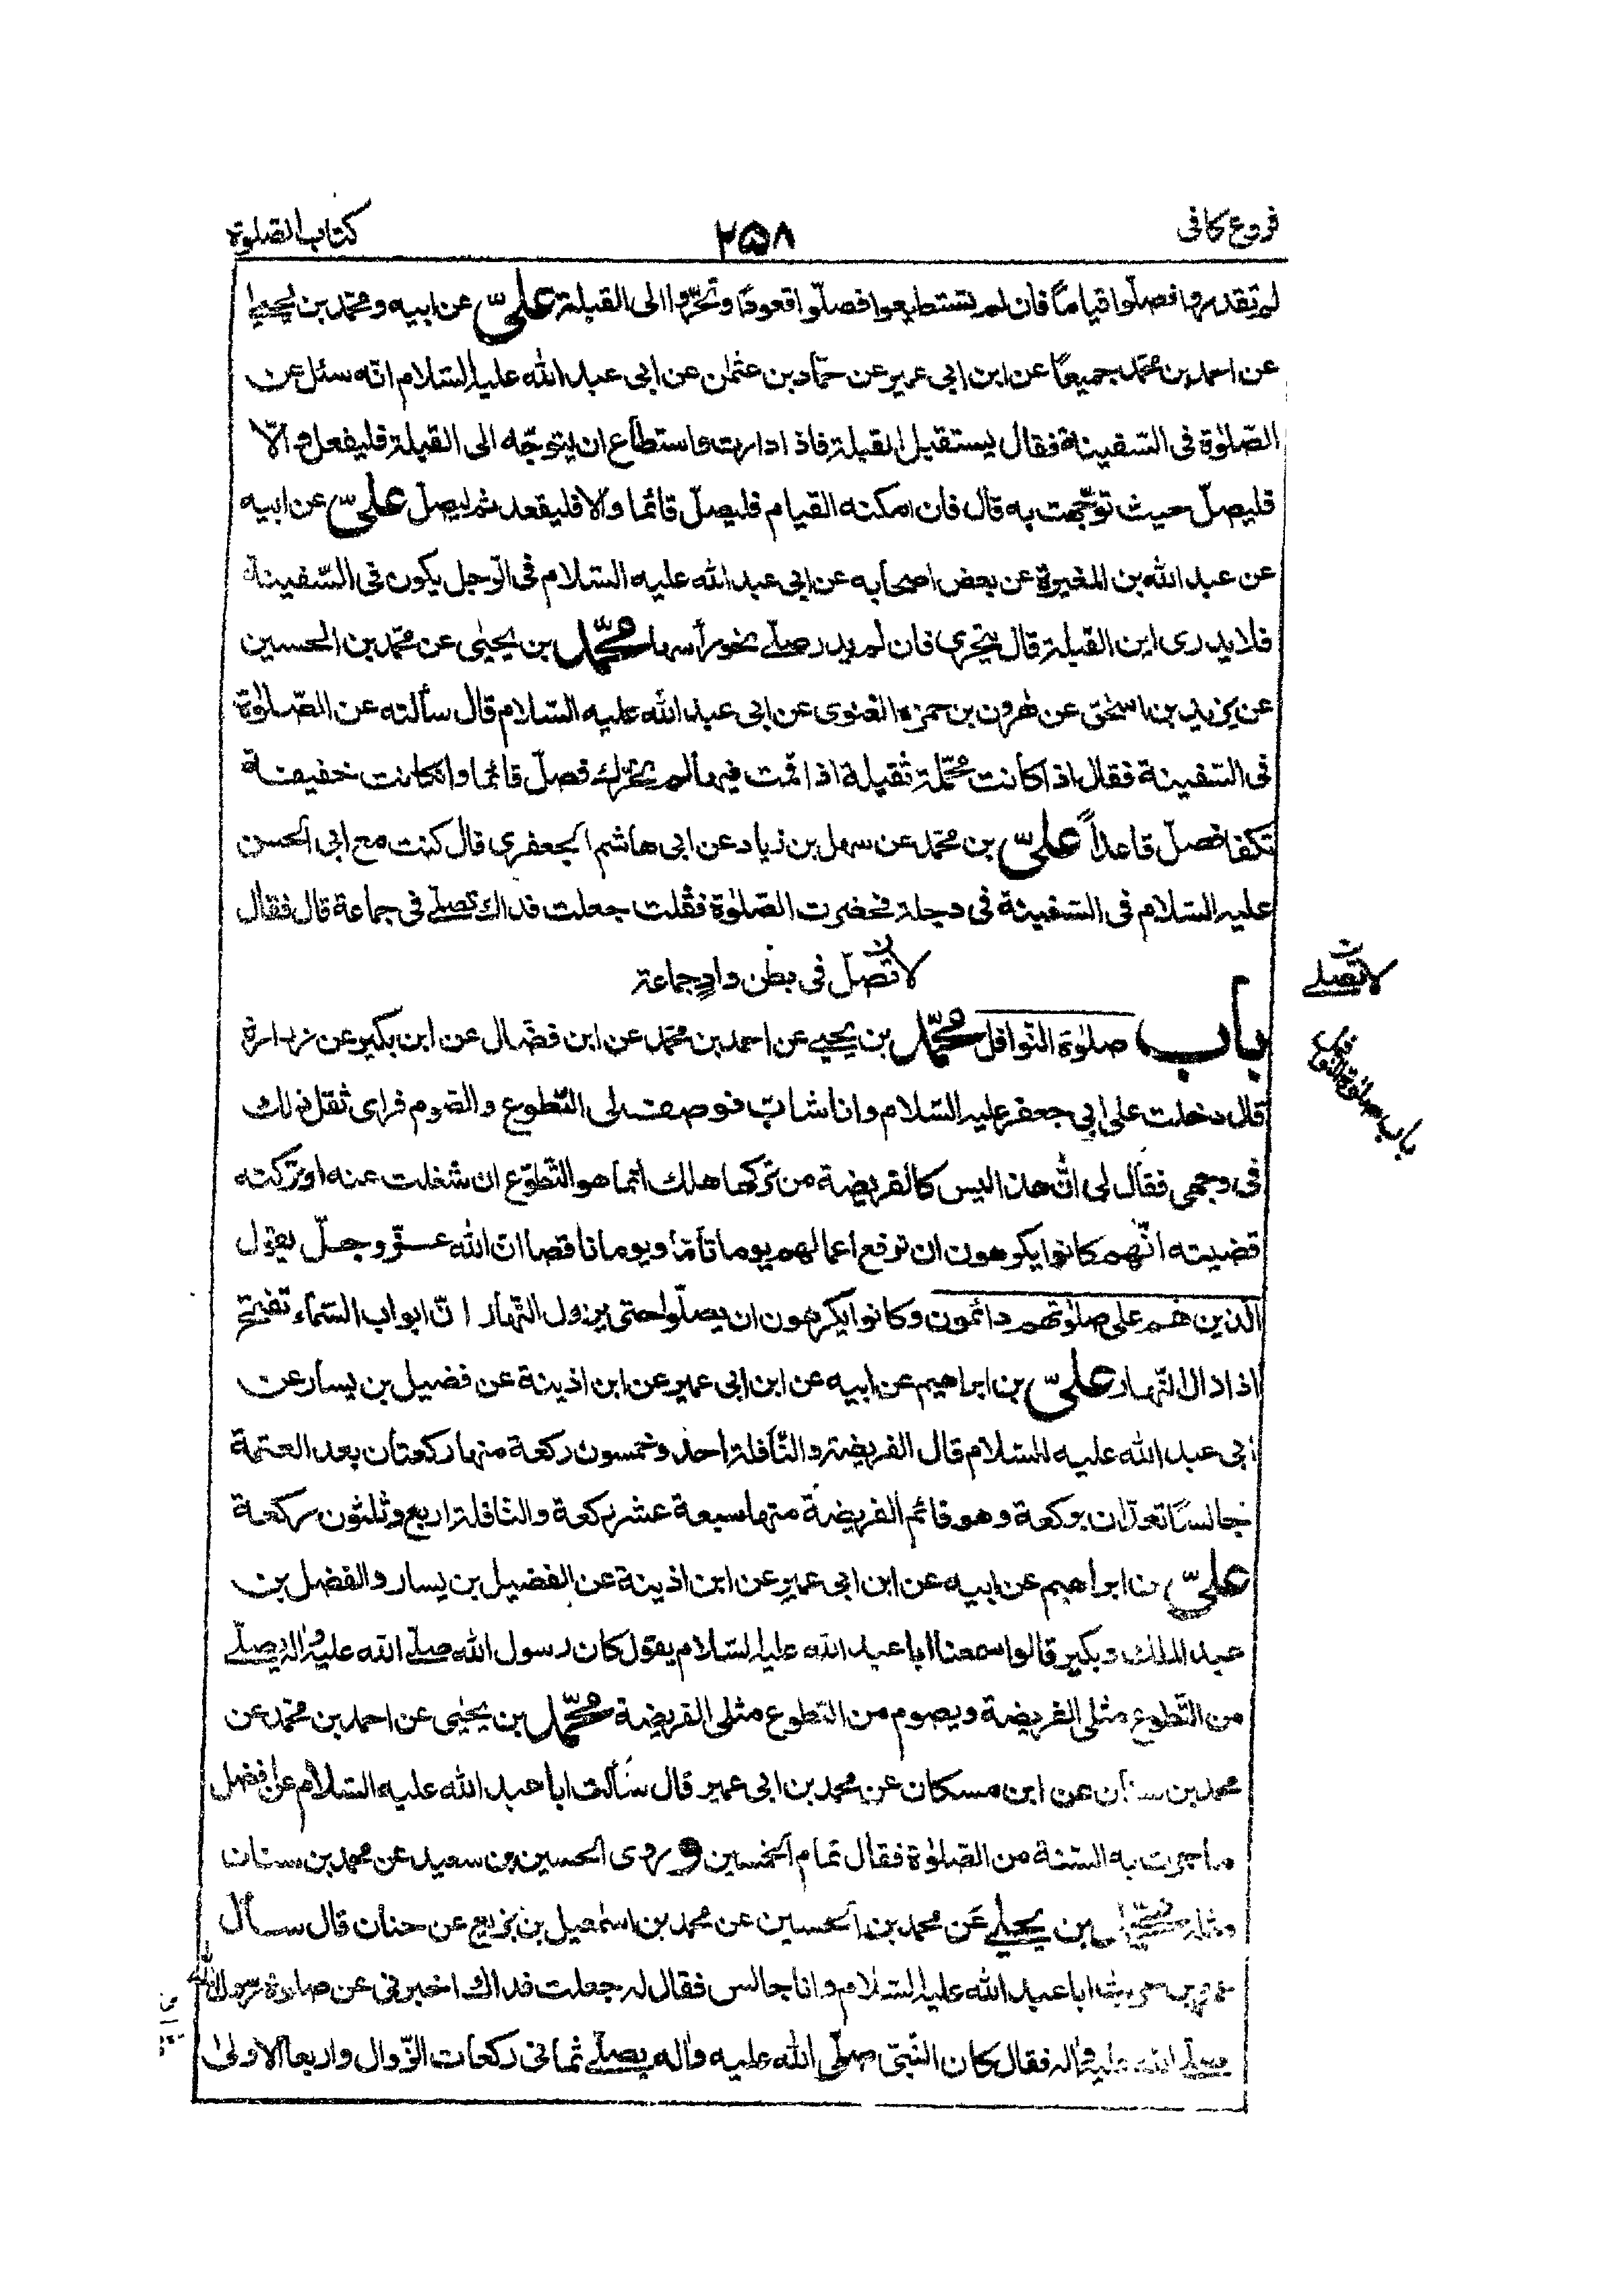 فروع كافى
٢٥٨
كتاب الصلوة
لم تقدروا فصلّوا قياماً فان لم تستطيعوا فصلّوا قعوداً وتحرّوا الى القبلة علىّ عن ابيه ومحمّد بن يحيى
عن احمد بن محمّد جميعاً عن ابن ابى عمير عن حمّاد بن عثمٰن عن ابى عبد الله عليه السّلام انّه سئل عن
الصّلوٰة فى السّفينة فقال يستقبل القبلة فاذا دارت واستطاع ان يتوجّه الى القبلة فليفعل والّا
فليصلّ حيث توجّهت به قال فان امكنه القيام فليصلّ قائما والّا فليقعد ثم ليصلّ علىّ عن ابيه
عن عبد الله بن المغيرة عن بعض اصحابه عن ابى عبد الله عليه السّلام فى الرّجل يكون فى السّفينة
فلا يدرى اين القبلة قال يتحرى فان لم يدر صلّے نحو رأسها محمّد بن يحيٰى عن محمّد بن الحسين
عن يزيد بن اسحٰق عن هٰرون بن حمزه الغنوى عن ابى عبد الله عليه السّلام قال سألته عن الصّلوٰة
فى السّفينة فقال اذا كانت محمّلة ثقيلة اذا قمت فيها لم يتحرّك فصلّ قائما وان كانت خفيفة
تكفا فصلّ قاعداً علىّ بن محمّد عن سهل بن زياد عن ابى هاشم الجعفرى قال كنت مع ابى الحسن
عليه السّلام فى السّفينة فى دجلة فحضرت الصّلوٰة فقلت جعلت فداك تصلّے فى جماعة قال فقال
لا تصلّ فى بطن وادٍ جماعة
لا تصلے
باب صلوٰة النّوافل محمّد بن يحيے عن احمد بن محمّد عن ابن فضّال عن ابن بكير عن زرارة
باب صلوة النوافل
قال دخلت على ابى جعفر عليه السّلام وانا شابّ فوصف لى التّطوع والصّوم فراى ثقل ذلك
فى وجهى فقال لى انّ هذا ليس كالفريضة من تركها هلك انّما هو التّطوّع ان شغلت عنه او تركته
قضيته انّهم كانوا يكرهون ان ترفع اعمالهم يوما تامّا ويوما ناقصا انّ الله عزّ وجلّ يقول
الّذين هم على صلوٰتهم دائمون وكانوا يكرهون ان يصلّوا حتى يزول النّهار انّ ابواب السّماء تفتح
اذا زال النّهار علىّ بن ابراهيم عن ابيه عن ابن ابى عمير عن ابن اذينة عن فضيل بن يسار عن
ابى عبد الله عليه السّلام قال الفريضة والنّافلة احد وخمسون ركعة منها ركعتان بعد العتمة
جالساً تعدّان بركعة وهو قائم الفريضة منها سبعة عشر ركعة والنافلة اربع وثلثون ركعة
علىّ بن ابراهيم عن ابيه عن ابن ابى عمير عن ابن اذينة عن الفضيل بن يسار والفضل بن
عبد الملك وبكير قالوا سمعنا ابا عبد الله عليه السّلام يقول كان رسول الله صلّے الله عليه واله يصلّے
من التّطوع مثلى الفريضة ويصوم من التطوع مثلى الفريضة محمّد بن يحيٰى عن احمد بن محمّد عن
محمد بن سنان عن ابن مسكان عن محمد بن ابى عمير قال سألت ابا عبد الله عليه السّلام عن افضل
ما جرت به السّنة من الصّلوٰة فقال تمام الخمسين وروى الحسين بن سعيد عن محمد بن سنان
مثله محمّد بن يحيے عن محمد بن الحسين عن محمد بن اسمٰعيل بن بزيع عن حنان قال سأل
عمرو بن حريث ابا عبد الله عليه السّلام وانا جالس فقال له جعلت فداك اخبرنى عن صلوة رسول الله
صلّے الله عليه واله فقال كان النّبىّ صلّى الله عليه واله يصلّے ثمانى ركعات الزّوال واربعا الاولىٰ